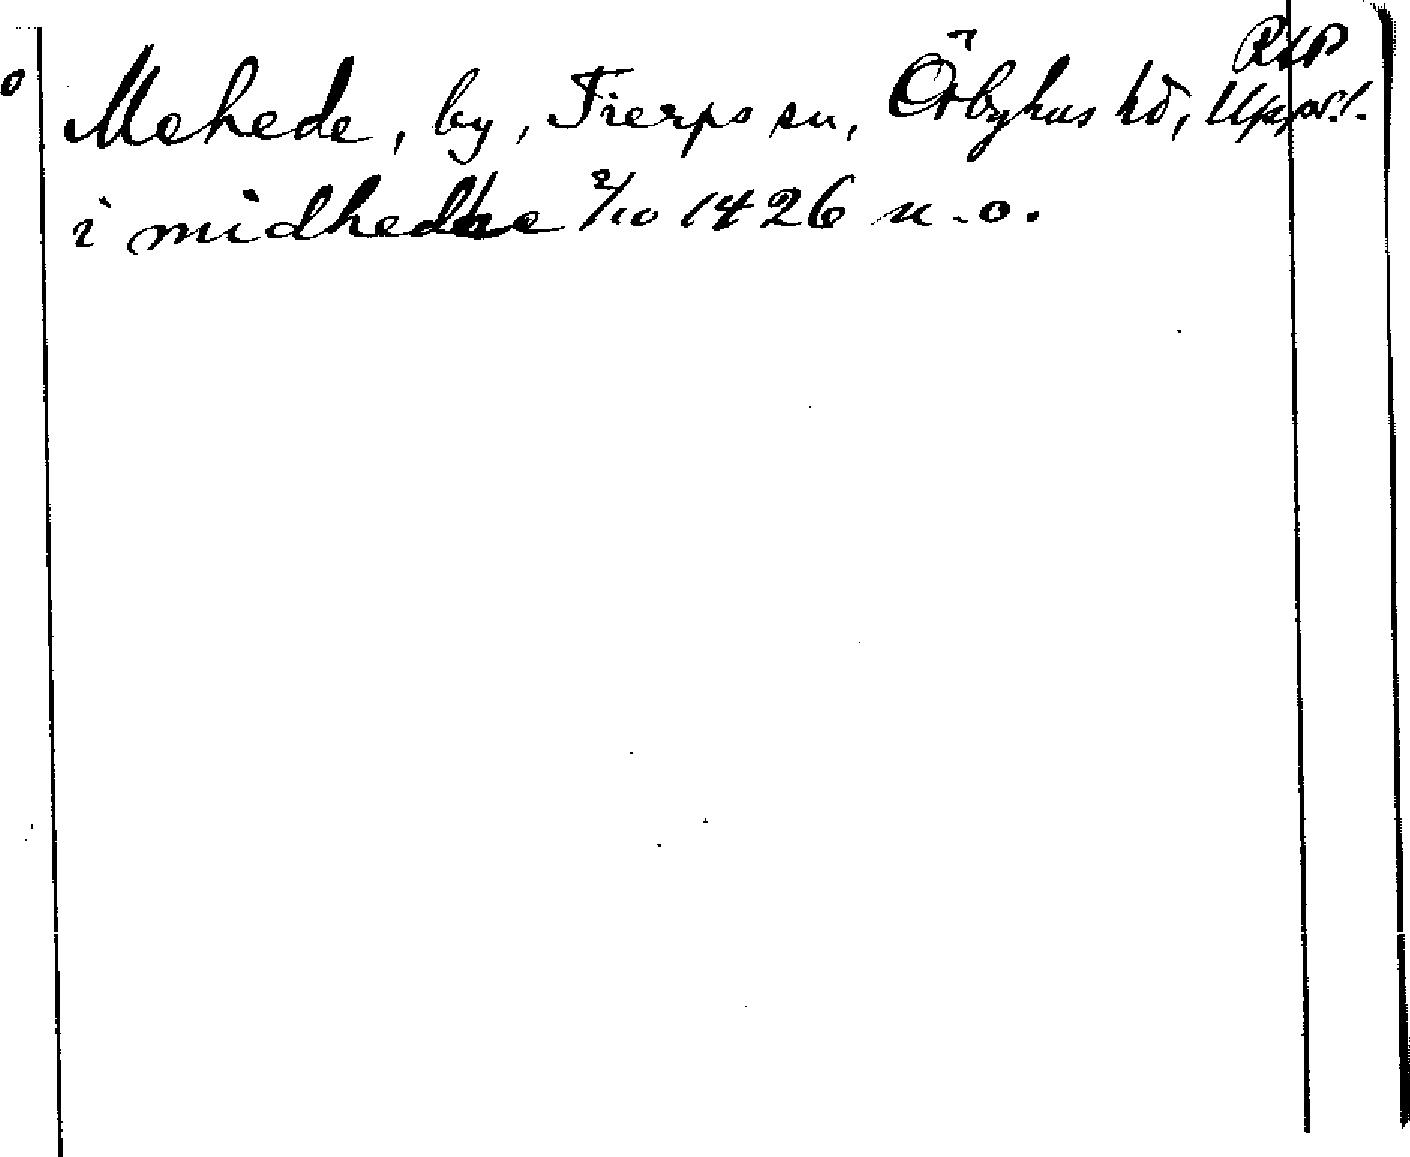 RAP
Mehede, by, Tierps sn, Örbyhus hd, Uppsl.
i midhedhe 2/10 1426 n.o.